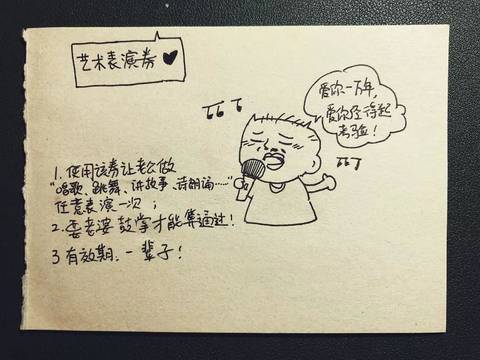 艺术表演券
爱你一万年，
爱你经得起
考验！
1. 使用该券让老公做
"唱歌、跳舞、讲故事、诗朗诵……"
任意表演一次；
2. 要老婆鼓掌才能算通过！
3 有效期、一辈子！